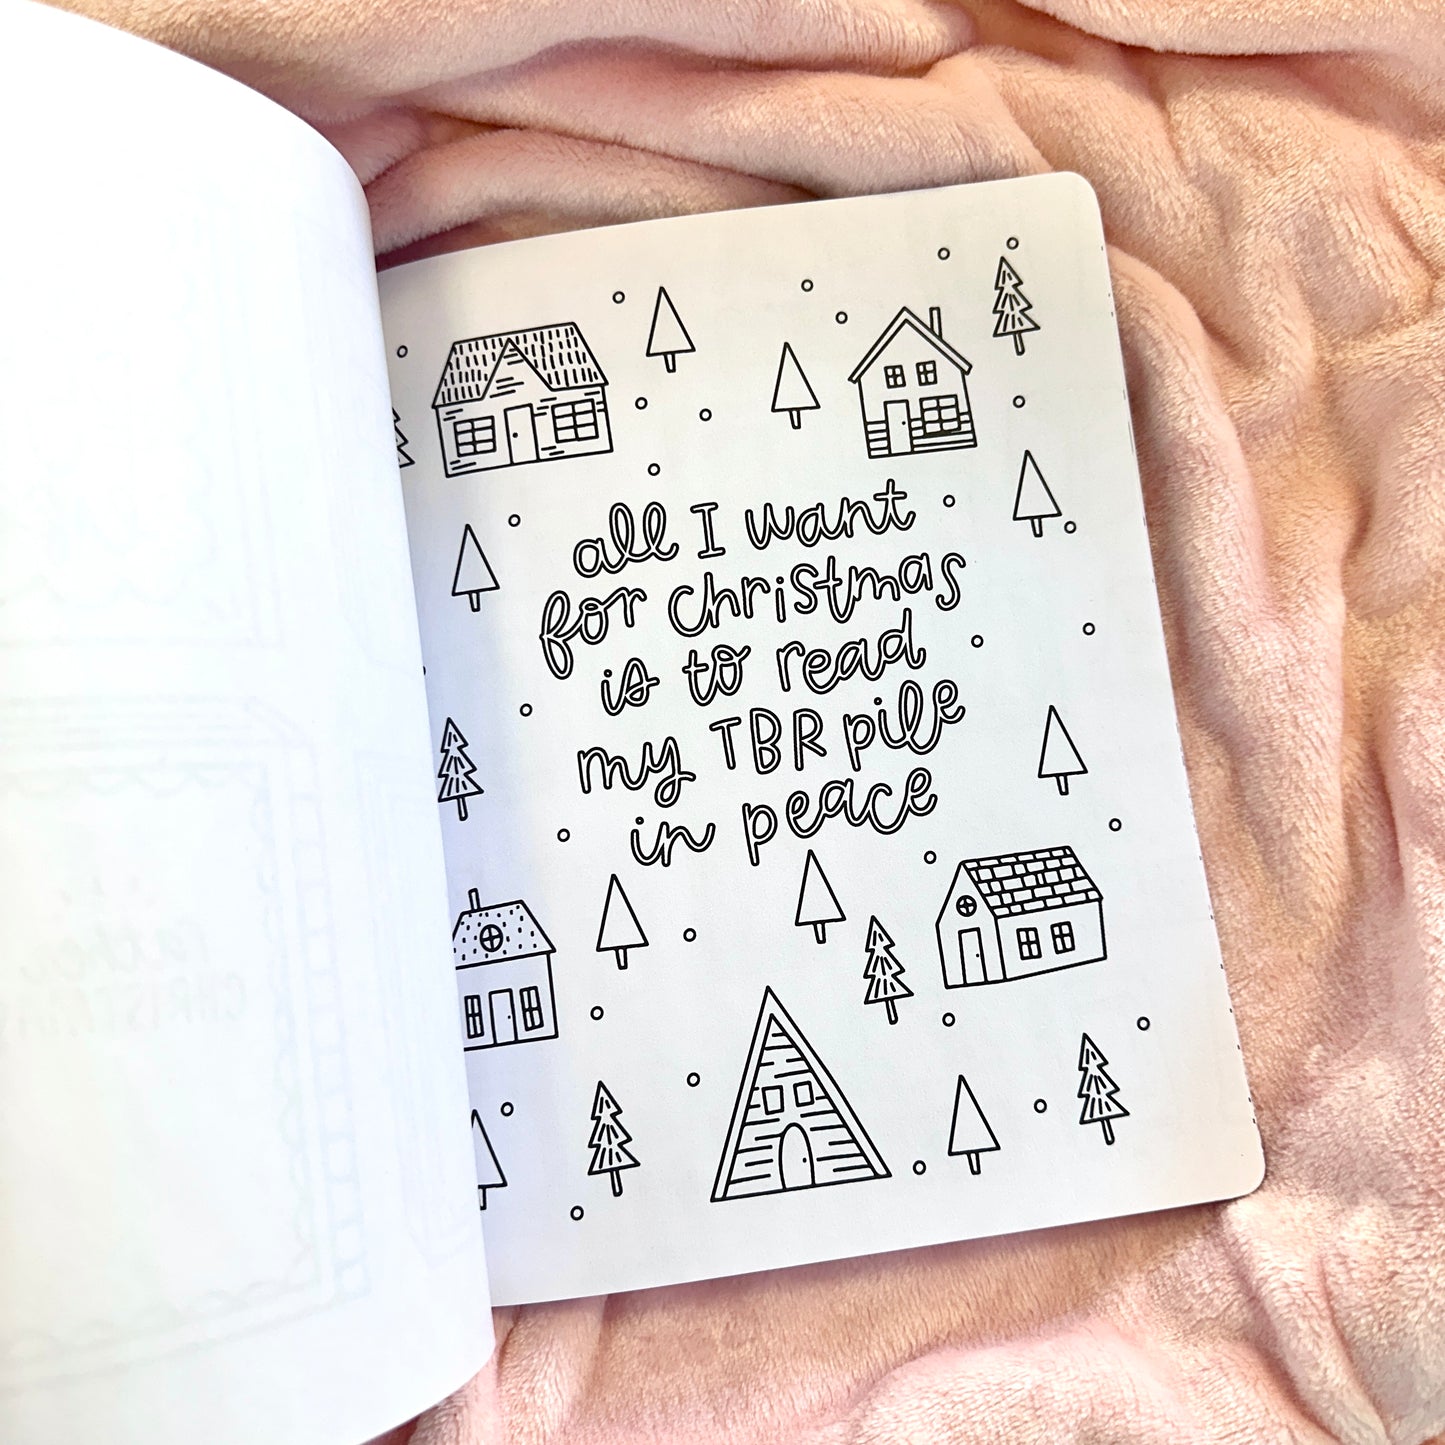 all I want
for christmas
is to read
my TBR pile
in peace